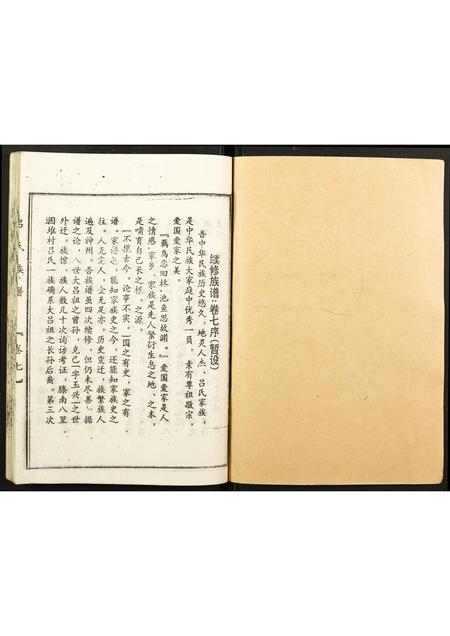 续修族谱：卷七序（暂设）
吾中华民族历史悠久，地灵人杰，吕氏家族，
是中华民族大家庭中优秀一员，素有尊祖敬宗，
爱国爱家之美。
『羁鸟恋旧林，池鱼思故渊。』爱国爱家是人
之情感，家乡、家族是先人繁衍生息之地，之本，
是哺育自己长之根，之源。
『不摭古今，论事不实。』国之有史，家之有
谱。家谱也，能知家族史之今，还能知家族史之
往。人无完人，金无足赤。历史变迁，族繁族人
遍及神州。吾族谱虽四次续修，但仍未尽善，据
谱之论，八世大吕祖之曾孙，克己〔字玉兴〕之世
外迁。族馆、族人数几十次询访考证，滕南八里
堌堆村吕氏一族确系大吕祖之长孙后裔。第三次
吕氏族谱
【卷七】